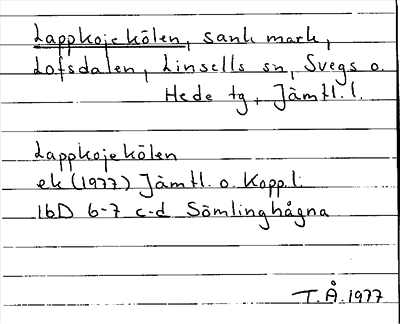 Lappkojekölen, sank mark,
Lofsdalen, Linsells sn, Svegs o.
Hede tg, Jämtl. l.
Lappkojekölen
ek (1977) Jämtl. o. Kopp. l.
16D 6-7 c-d Sömlinghågna
T.Å. 1977